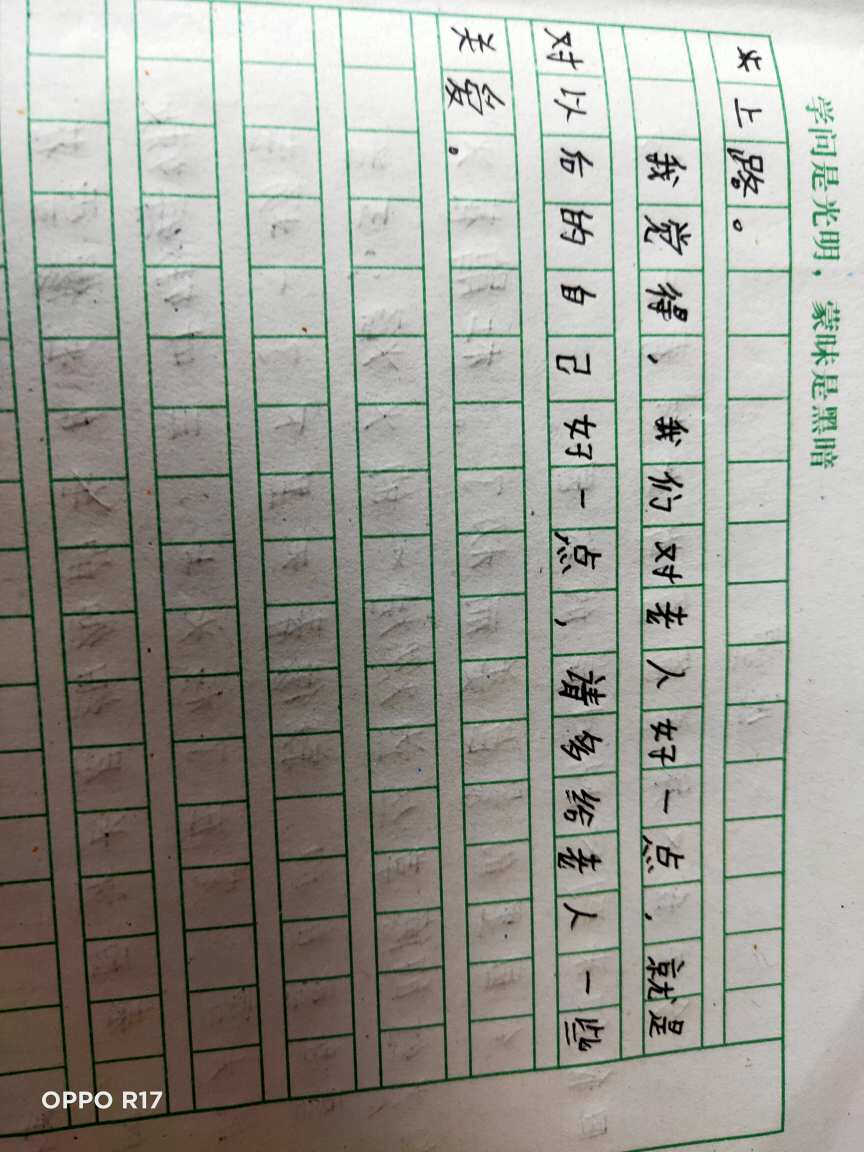 学问是光明，蒙昧是黑暗
米上路。
我觉得，我们对老人好一点，就是
对以后的自己好一点，请多给老人一些
关爱。
OPPO R17